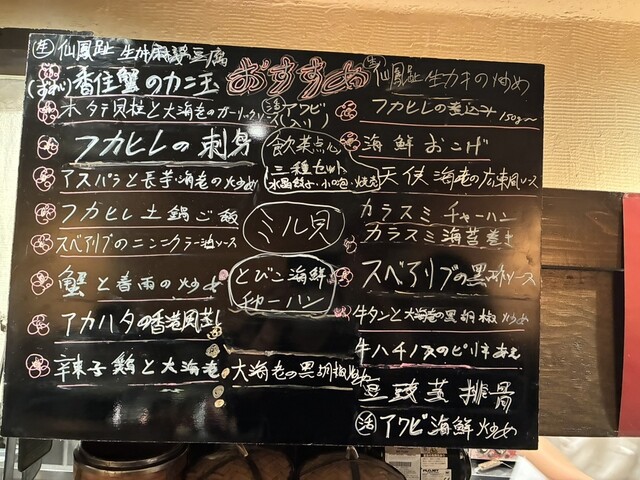 生 仙鳳趾 生カキ麻婆豆腐
香住蟹のカニ玉
ホタテ貝柱と大海老のガーリック
フカヒレの刺身
アスパラと長芋海老の炒め
フカヒレ土鍋ご飯
スペアリブのニンニクラー油ソース
蟹と春雨の炒め
アカハタの香港風蒸し
辣子鶏と大海老
おすすめ
活 アワビ
飲茶点心
三種セット
水晶餃子・小籠包・焼売
ミル貝
とびこ海鮮
チャーハン
大海老の黒胡椒炒め
生 仙鳳趾生カキの炒め
フカヒレの煮込み 150g〜
海鮮おこげ
天使海老の広東風ソース
カラスミチャーハン
カラスミ海苔巻き
スペアリブの黒酢ソース
牛タンと大海老の黒胡椒炒め
牛ハチノスのピリ辛あえ
豆豉蒸排骨
活 アワビ海鮮炒め